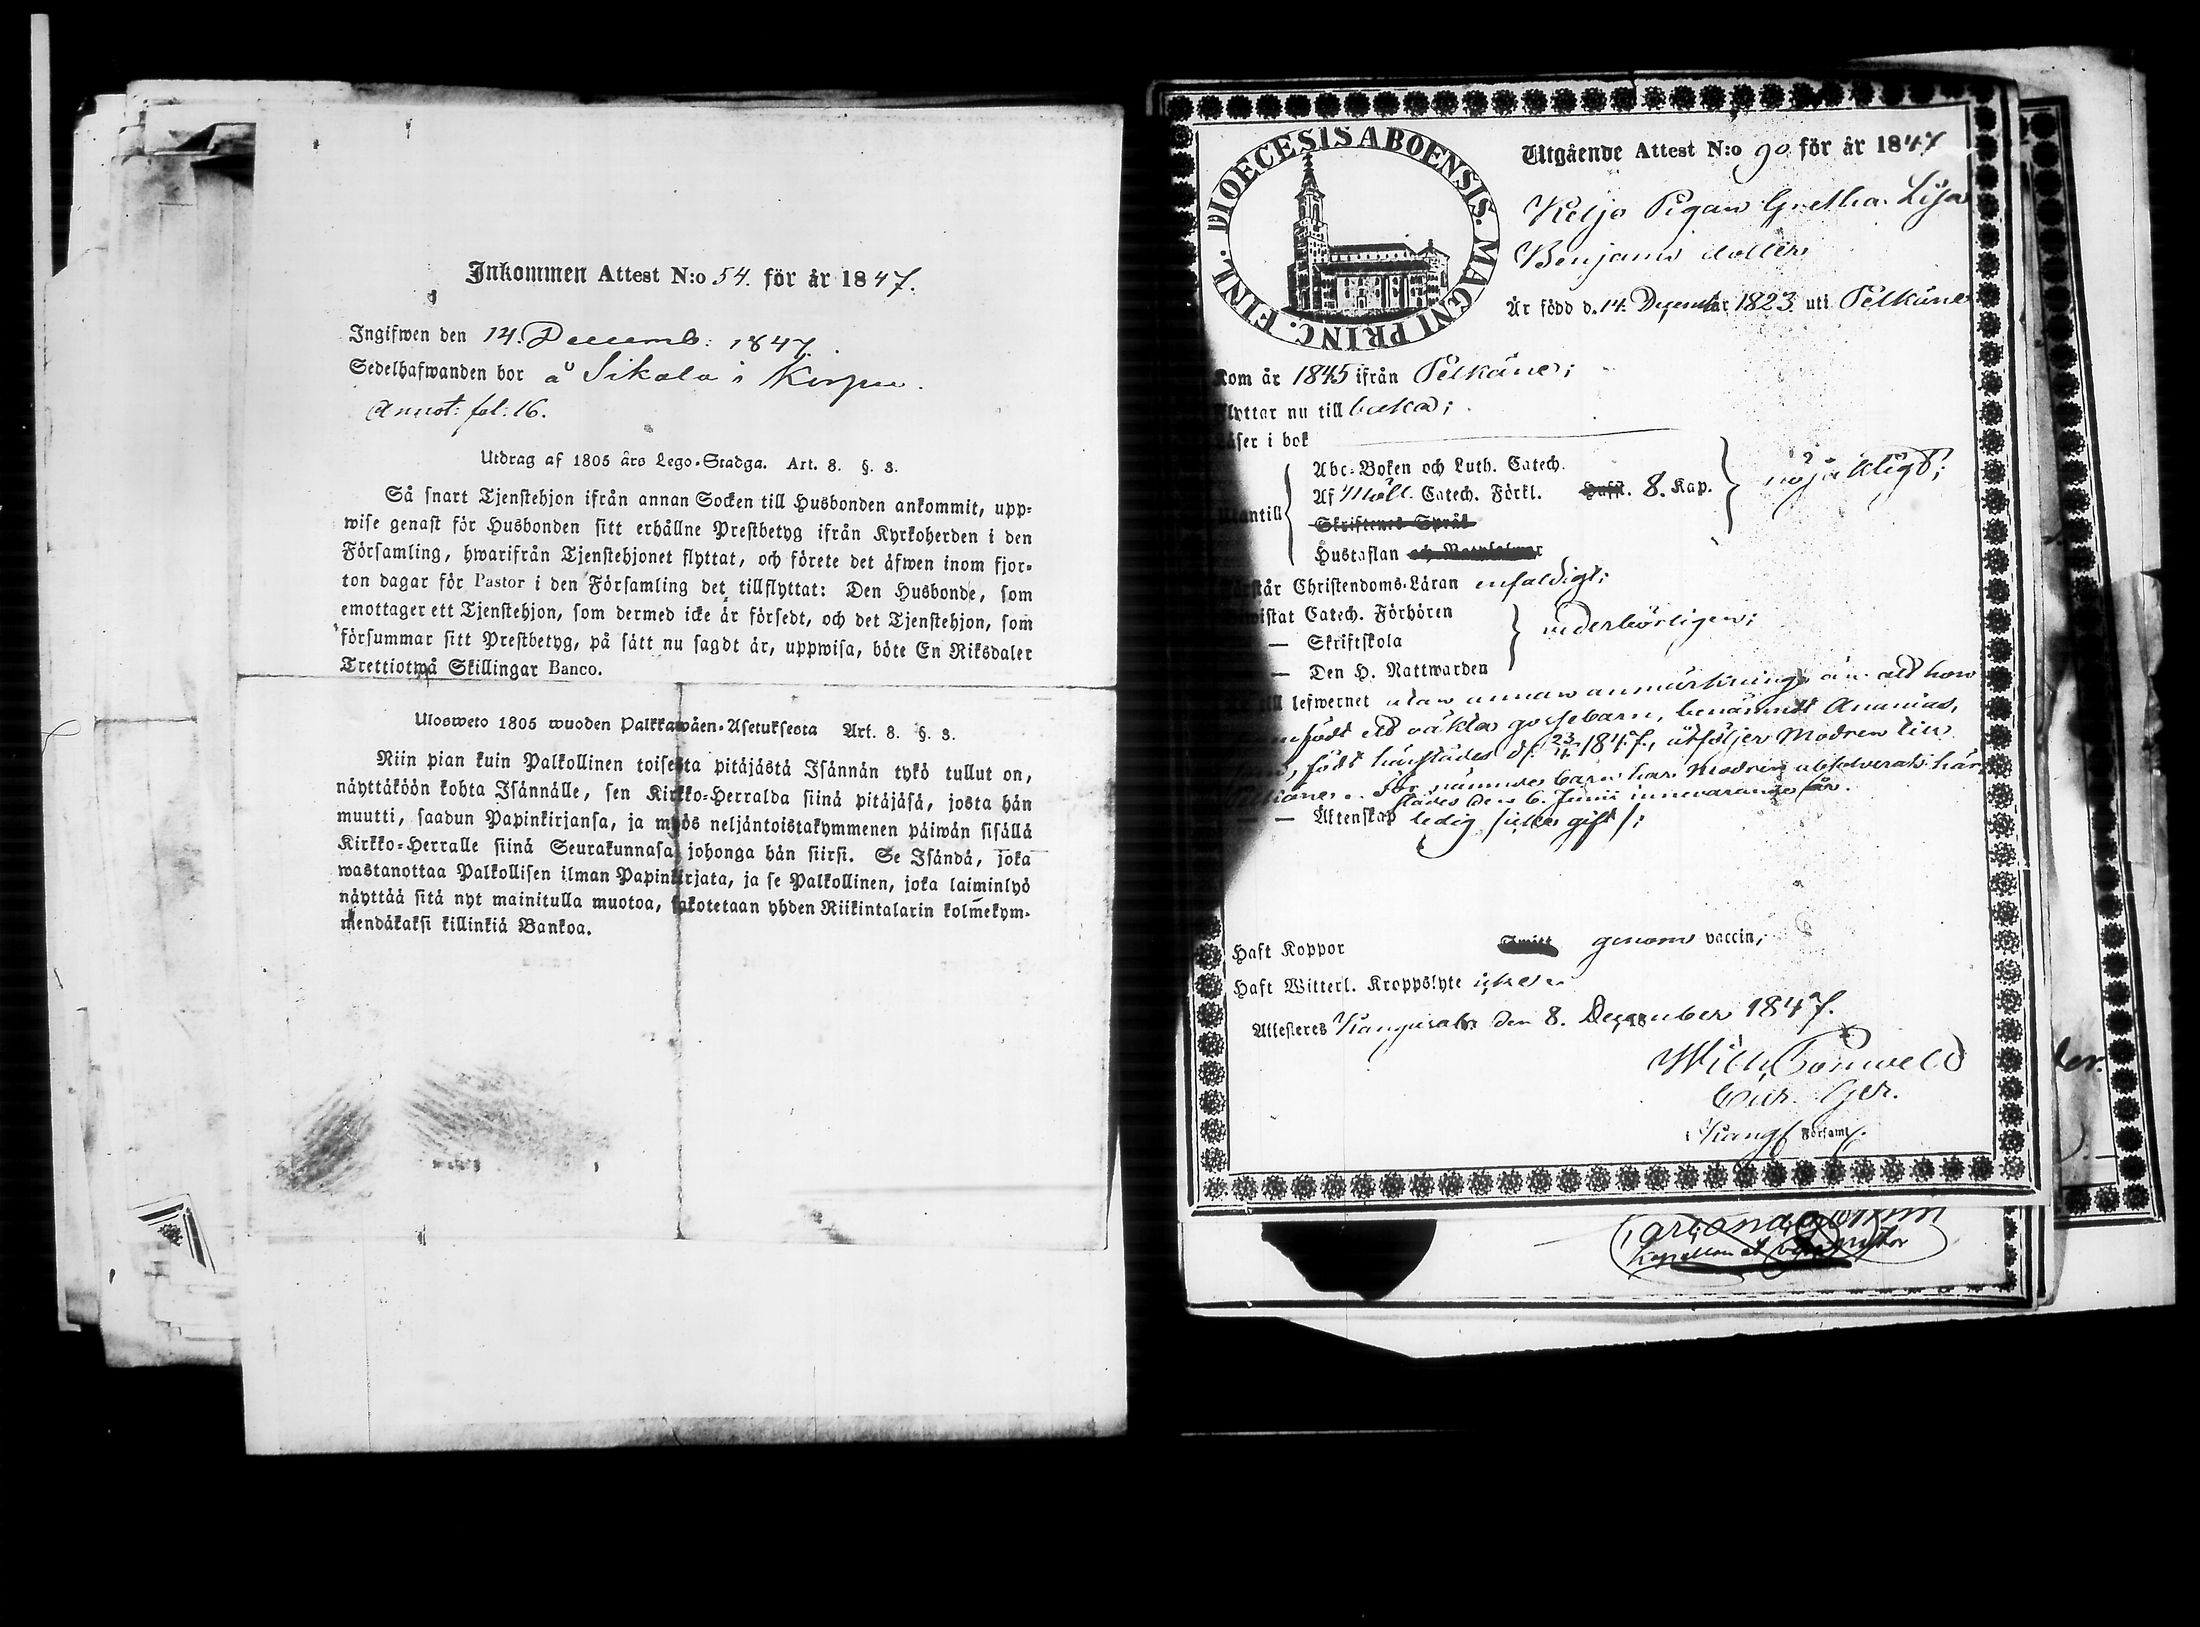 Inkommen Attest N:o 54. för år 1847.
Ingifwen den 14. Decemb: 1847.
Sedelhafwanden bor å Sikala i Korpi.
Annot: fol: 16.
Utdrag af 1805 års Lego-Stadga. Art. 8. §. 3.
Så snart Tjenstehjon ifrån annan Socken till Husbonden ankommit, upp-
wise genast för Husbonden sitt erhållne Prestbetyg ifrån Kyrkoherden i den
Församling, hwarifrån Tjenstehjonet flyttat, och förete det äfwen inom fjor-
ton dagar för Pastor i den Församling det tillflyttat: Den Husbonde, som
emottager ett Tjenstehjon, som dermed icke är försedt, och det Tjenstehjon, som
försummar sitt Prestbetyg, på sätt nu sagdt är, uppwisa, böte En Riksdaler
Trettiotwå Skillingar Banco.
Ulosweto 1805 wuoden Palkkawäen-Asetuksesta Art. 8. §. 3.
Niin pian kuin Palkollinen toisesta pitäjästä Isännän tykö tullut on,
näyttäköön kohta Isännälle, sen Kirkko-Herralda siinä pitäjäsä, josta hän
muutti, saadun Papinkirjansa, ja myös neljäntoistakymmenen päiwän sisällä
Kirkko-Herralle siinä Seurakunnasa, johonga hän siirsi. Se Isändä, joka
wastanottaa Palkollisen ilman Papinkirjata, ja se Palkollinen, joka laiminlyö
näyttää sitä nyt mainitulla muotoa, sakotetaan yhden Riikintalarin kolmekym-
mendäkaksi killinkiä Bankoa.
FINL. DIOECESIS ABOENSIS. MAGNI PRINC.
Utgående Attest N:o 90 för år 1847
Pigan Gretha Lisa
Benjams dotter
Är född d. 14. December 1823 uti Pelkäne
Kom år 1845 ifrån Pelkäne;
Flyttar nu till baka;
Läser i bok
Abc-Boken och Luth. Catech.
Af Möll. Catech. Förkl. 8. Kap. nöjaktigt;
Utantill
Skriftenes Språk
Hustaflan
Förstår Christendoms-Läran enfaldigt;
Bewistat Catech. Förhören
— Skriftskola vederbörligen;
— Den H. Nattwarden
Till lefwernet utan annan anmärkning än att hon
födt ett oäkta gossebarn, benämndt Ananias,
födt härstädes d. 23/4 1847, åtföljer Modren till
Pelkäne. För nämnde barn har Modren absolverats här
städes den 6. Junii innevarande år.
— — Äktenskap ledig /icke gift/;
Haft Koppor genom vaccin;
Haft Witterl. Kroppslyte icke
Attesteres Kangasala den 8. December 1847.
Församl.